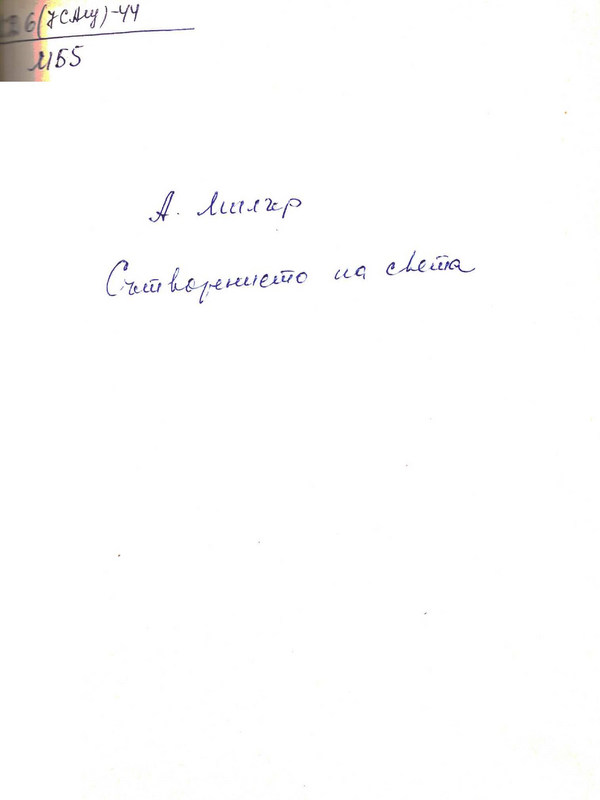 6(7САщ)-44
М55
А. Милър
Сътворението на света